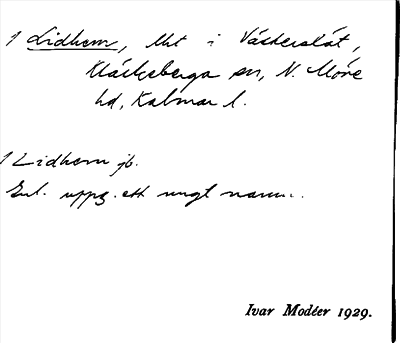 1 Lidhem, lht i Väckerslät,
Kläckeberga sn, N. Möre
hd, Kalmar l.
1 Lidhem jb.
Enl. uppg. ett ungt namn.
Ivar Modéer 1929.